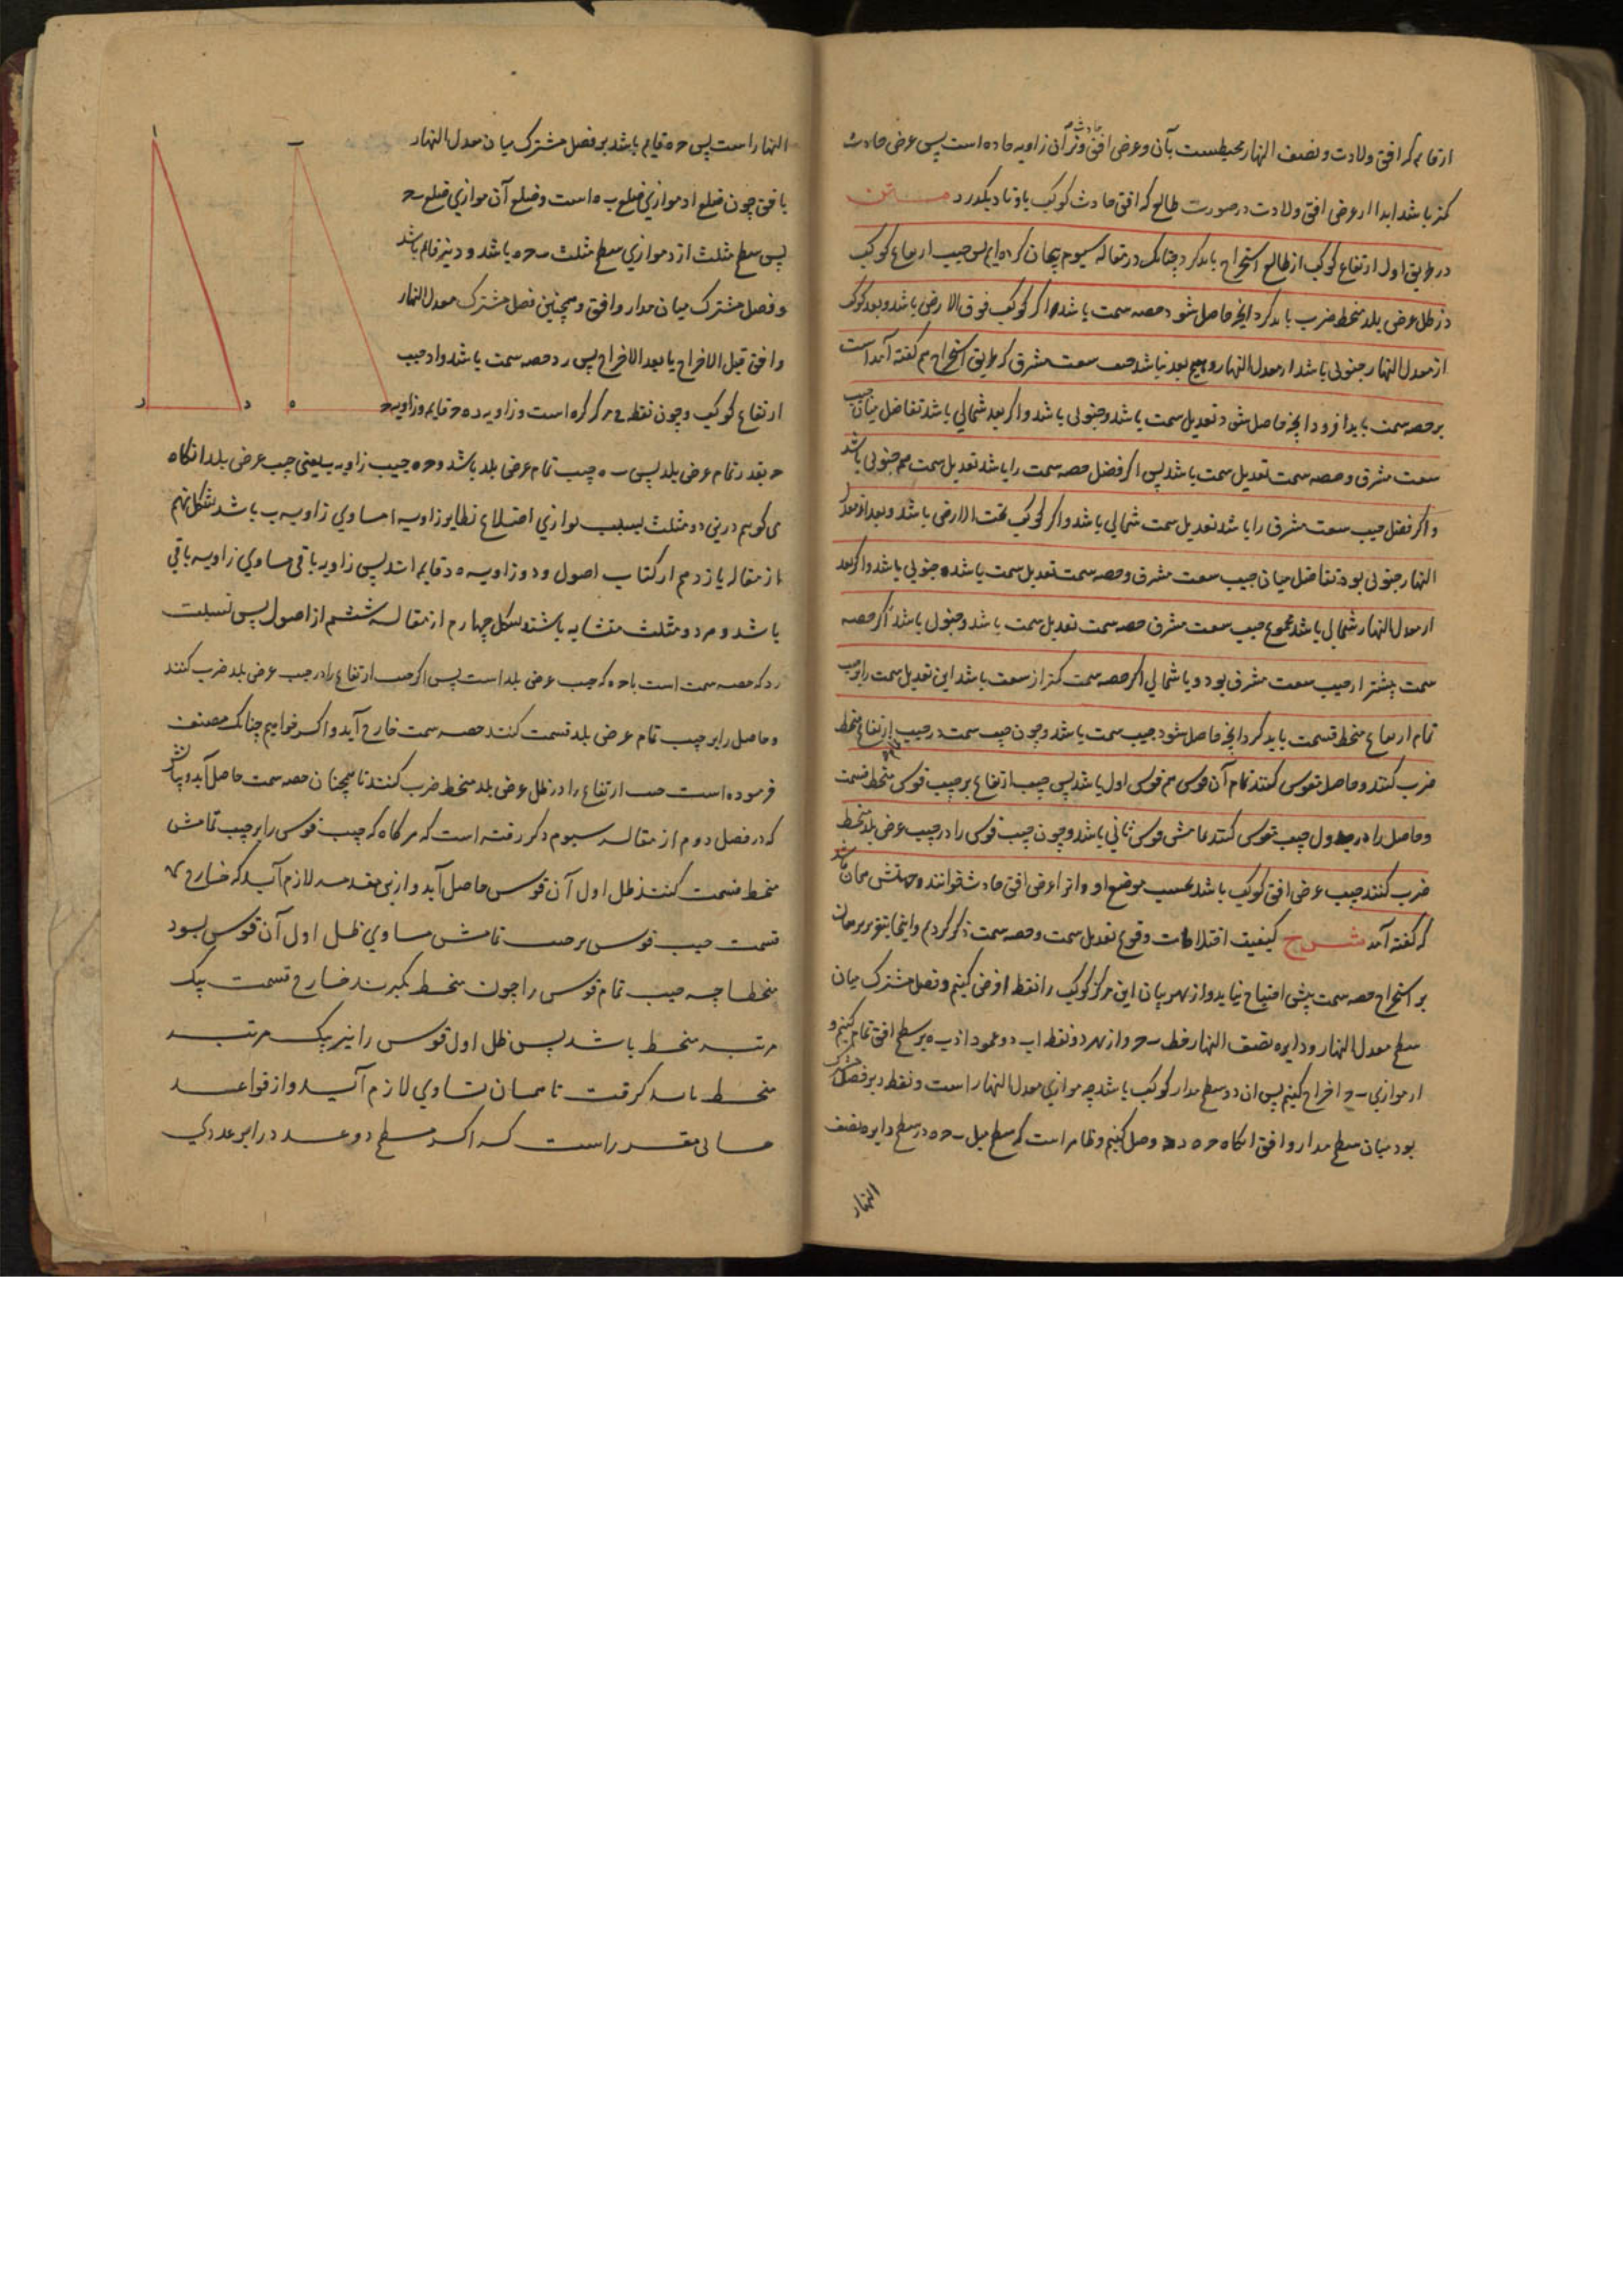 ارقام که افق ولادت و نصف النهار محیطست بآن و عرض افق حادث وتر آن زاویه حاده است پس عرض حادث
کمتر باشد ابدا از عرض افق ولادت در صورت طالع که افق حادث کوکب باوتاد یکدرد متن
در طریق اول ارتفاع کوکب از طالع استخراج باید کرد چنانک در مقاله سیوم بیان کرده ایم پس جیب ارتفاع کوکب
در ظل عرض بلد منحط ضرب باید کرد آنچه حاصل شود حصه سمت باشد اگر کوکب فوق الارض باشد و بعد کوکب
از معدل النهار جنوبی باشد از معدل النهار و هیچ بعد نباشد جیب سعت مشرق که طریق استخراج هم گفته آمد است
بر حصه سمت باید افزود آنچه حاصل شود تعدیل سمت باشد و جنوبی باشد و اگر بعد شمالی باشد تفاضل میان جیب
سعت مشرق و حصه سمت تعدیل سمت باشد پس اگر فضل حصه سمت را باشد تعدیل سمت هم جنوبی باشد
و اگر فضل جیب سعت مشرق را باشد تعدیل سمت شمالی باشد و اگر کوکب تحت الارض باشد و بعد از معدل
النهار جنوبی بود تفاضل میان جیب سعت مشرق و حصه سمت تعدیل سمت باشد جنوبی باشد و اگر بعد
از معدل النهار شمالی باشد مجموع جیب سعت مشرق حصه سمت تعدیل سمت باشد و جنوبی باشد اگر حصه
سمت بیشتر از جیب سعت مشرق بود و یا شمالی اگر حصه سمت کمتر از سعت باشد این تعدیل سمت را بر جیب
تمام ارتفاع منحط قسمت باید کرد آنچه حاصل شود جیب سمت باشد و چون جیب سمت در جیب ارتفاع منحط
ضرب کنند و حاصل تقویس کنند تمام آن قوس هم قوس اول باشد پس جیب ارتفاع بر جیب قوس منحط قسمت
و حاصل را در جدول جیب تقویس کنند تمامش قوس ثانی باشد و چون جیب قوس را در جیب عرض بلد منحط
ضرب کنند جیب عرض افق کوکب باشد بحسب موضع او و انرا عرض افق حادث خوانند و جهتش همان باشد
که گفته آمد شرح کیفیت اختلافات وقوع تعدیل سمت و حصه سمت ذکر کردیم و اینجا بتقریر برهان
بر استخراج حصه سمت بیش احتیاج نیاید و از بهر بیان این مرکز کوکب را نقطه ا فرض کنیم و فصل مشترک میان
سطح معدل النهار و دایره نصف النهار خط ب ح و از هر دو نقطه ا ب دو عمود ا ز ب ه بر سطح افق قائم کنیم و
ا د موازی ب ح اخراج کنیم پس ا ن د در سطح مدار کوکب باشد چه موازی معدل النهار است و نقطه د بر فصل مشترک
بود میان سطح مدار و افق انگاه ح ه د ر وصل کنیم و ظاهر است که سطح مثل ب ح ه در سطح دایره نصف
النهار
النهار است پس ح ه قایم باشد بر فصل مشترک میان معدل النهار
با افق چون ضلع ا د موازی ضلع ب ه است و ضلع آن موازی ضلع ب ح
پس سطح مثلث ا ز د موازی سطح مثلث ب ح ه باشد و د نیز قائم باشد
و فصل مشترک میان مدار و افق و همچنین فصل مشترک معدل النهار
و افق قبل الاخراج یا بعد الاخراج پس ر د حصه سمت باشد و ا د جیب
ارتفاع کوکب و چون نقطه ح مرکز کره است و زاویه د ه ح قایم و زاویه ح
ح بقدر تمام عرض بلد پس ب ه جیب تمام عرض بلد باشد و ح ه جیب زاویه ب یعنی جیب عرض بلد انگاه
می گویم درین دو مثلث بسبب توازی اضلاع نظایر زاویه ا مساوی زاویه ب باشد بشکل نهم
از مقاله یازدهم از کتاب اصول و دو زاویه ه د قایم اند پس زاویه باقی مساوی زاویه باقی
باشد و هر دو مثلث متشابه باشند بشکل چهارم از مقاله ششم از اصول پس نسبت
ر د که حصه سمت است با ح ه که جیب عرض بلد است پس اگر جیب ارتفاع را در جیب عرض بلد ضرب کنند
و حاصل را بر جیب تمام عرض بلد قسمت کنند حصه سمت خارج آید و اگر خواهیم چنانک مصنف
فرموده است جیب ارتفاع را در ظل عرض بلد منحط ضرب کنند تا همچنان حصه سمت حاصل آید و بیانش
که در فصل دوم از مقاله سیوم ذکر رفته است که هر گاه که جیب قوس را بر جیب تمامش
منحط قسمت کنند ظل اول آن قوس حاصل آید و ازین مقدمه لازم آید که خارج
قسمت جیب قوس بر جیب تمامش مساوی ظل اول آن قوس بود
منحطا چه جیب تمام قوس را چون منحط بگیرند خارج قسمت یک
مرتبه منحط باشد پس ظل اول قوس را نیز یک مرتبه
منحط باید گرفت تا همان تساوی لازم آید و از قواعد
حسابی مقرر است که اگر مسطح دو عدد را بر عددی